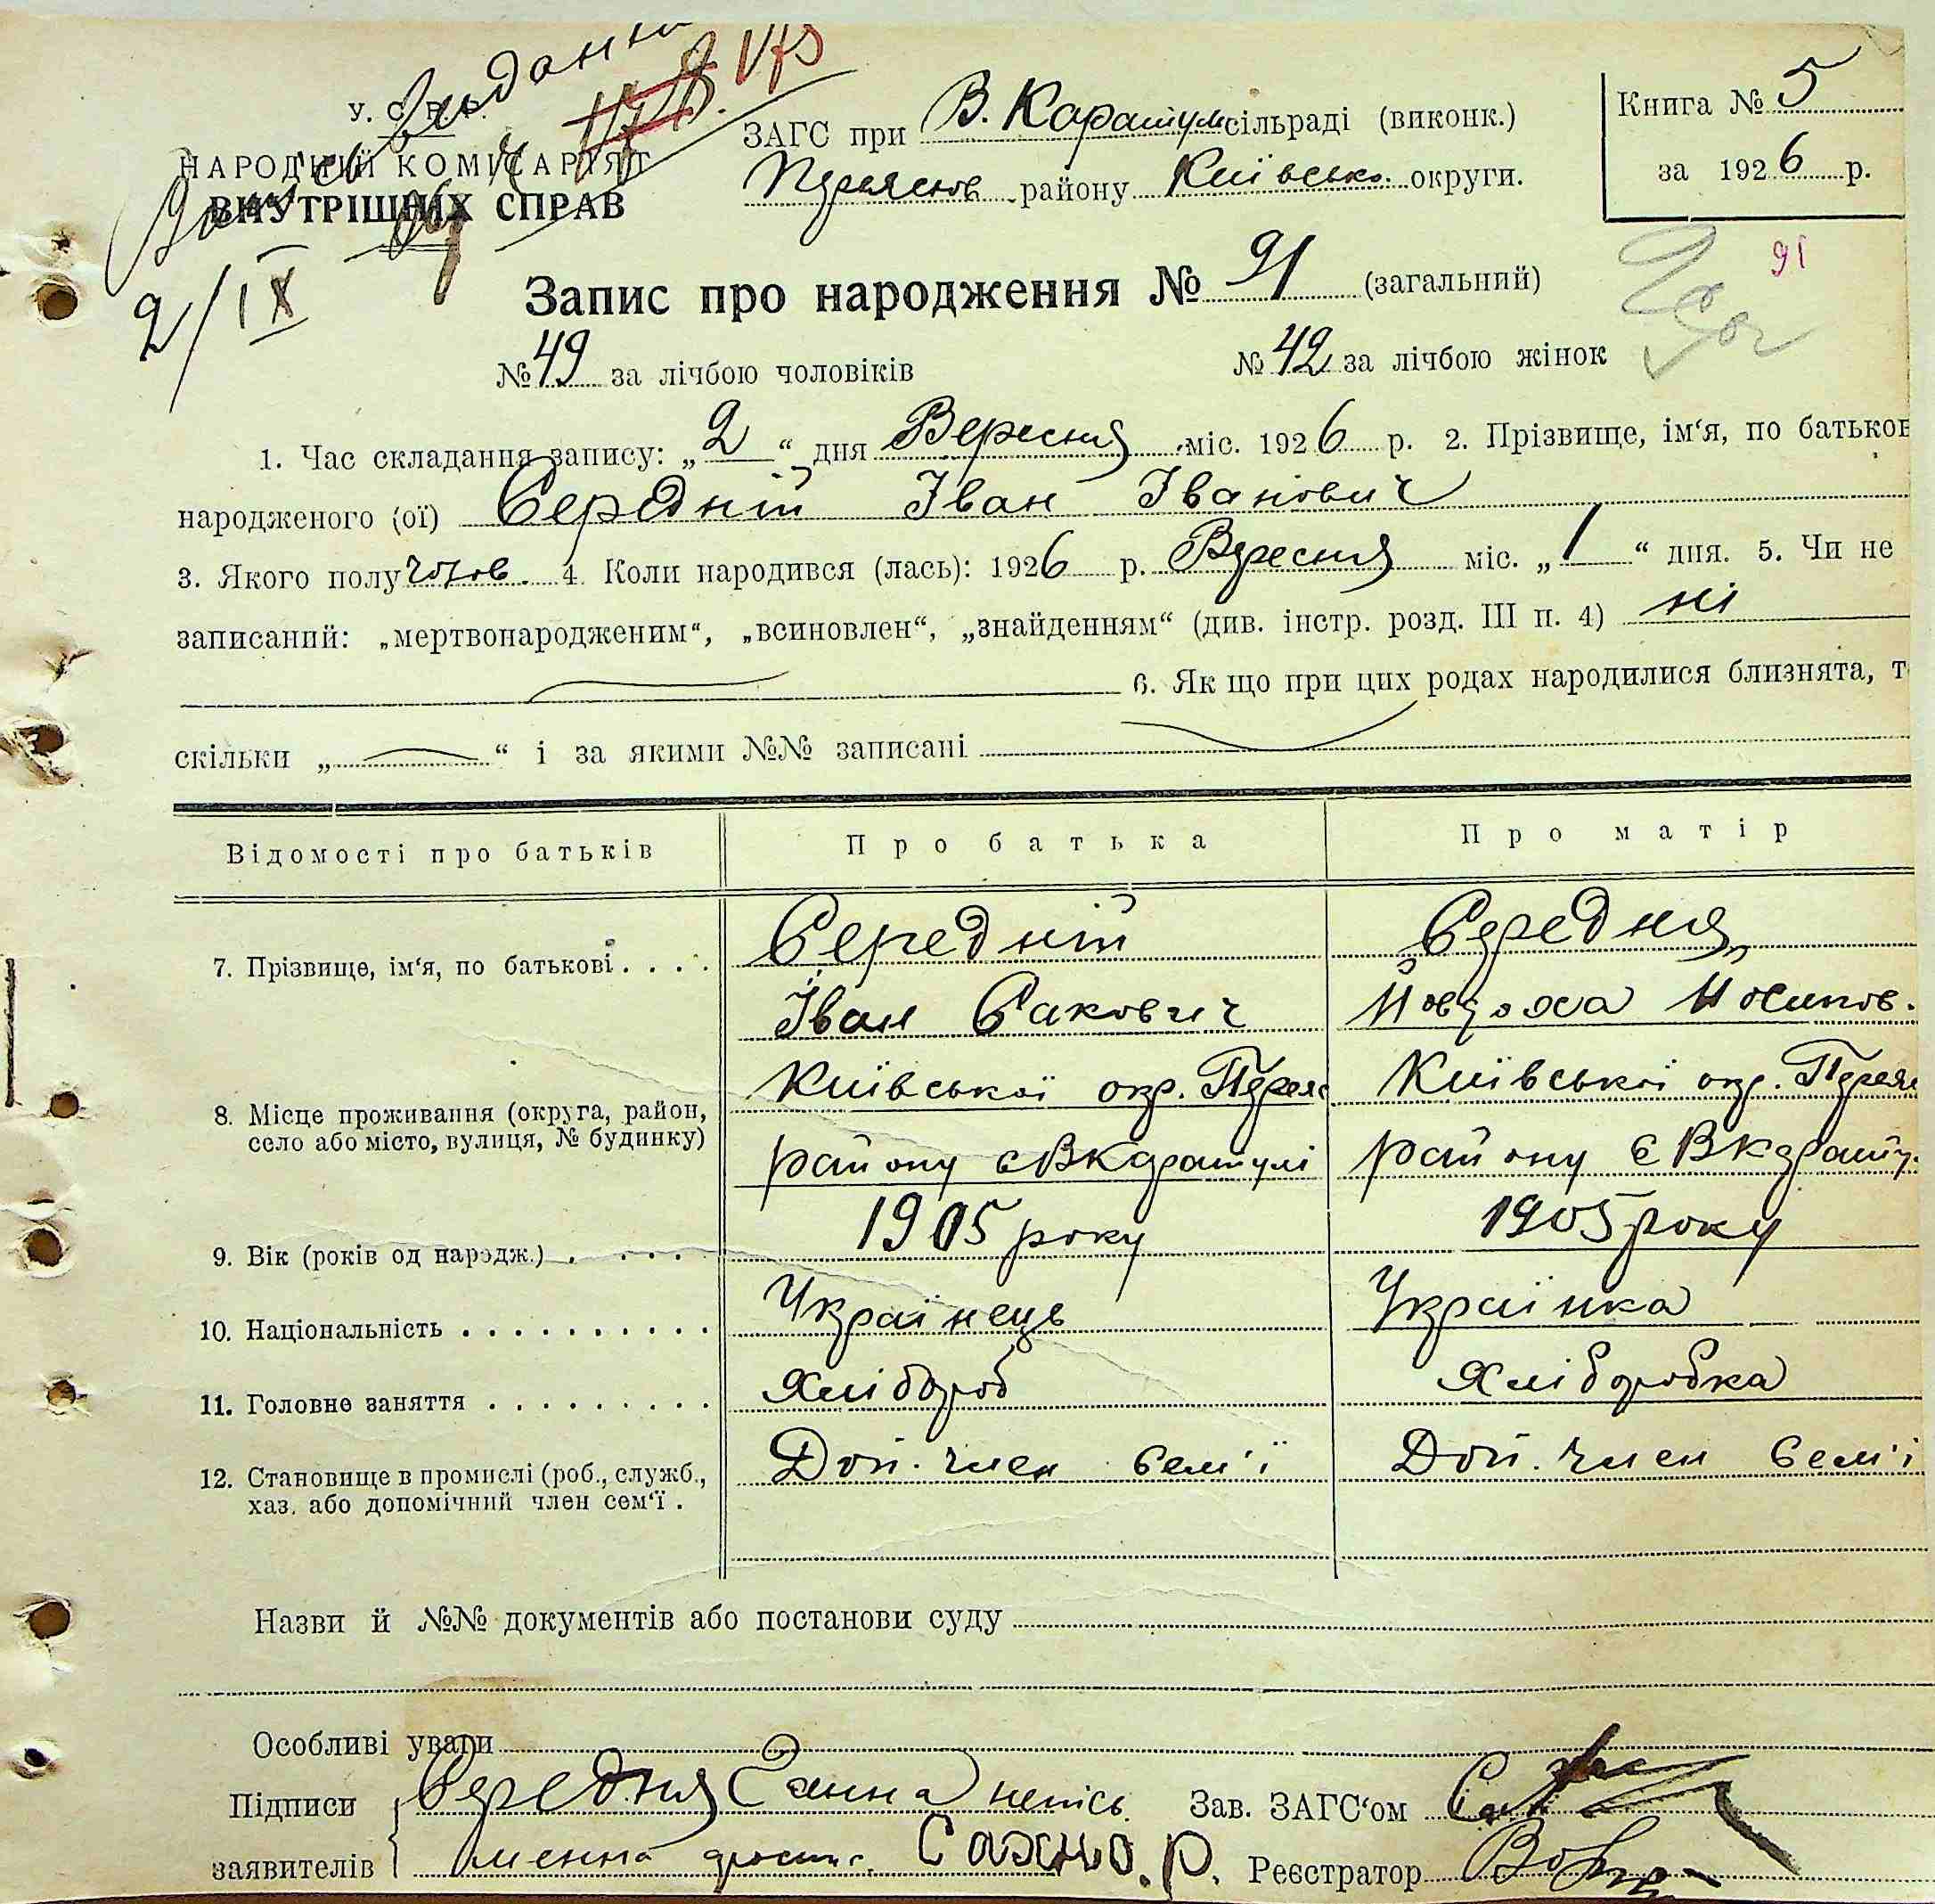 У. С. Р. Р.
НАРОДНІЙ КОМІСАРІЯТ
ВНУТРІШНІХ СПРАВ
2/IX
ЗАГС при В. Каратул сільраді (виконк.)
Переяслов району Київсько округи.
Книга № 5
за 1926 р.
91
Запис про народження № 91 (загальний)
№ 49 за лічбою чоловіків № 42 за лічбою жінок
1. Час складання запису: „2“ дня Вересня міс. 1926 р. 2. Прізвище, ім‘я, по батьков
народженого (ої) Середній Іван Іванович
3. Якого полу чолов. 4. Коли народився (лась): 1926 р. Вересня міс. „1“ дня. 5. Чи не
записаний: „мертвонародженим“, „всиновлен“, „знайденням“ (див. інстр. розд. III п. 4) ні
6. Як що при цих родах народилися близнята, т
скільки „ “ і за якими №№ записані
Відомості про батьків Про батька Про матір
7. Прізвище, ім‘я, по батькові Середній Середня
Іван Сакович Йовдоха Йосипов.
8. Місце проживання (округа, район, село або місто, вулиця, № будинку) Київської окр. Переяс Київської окр. Переяс
району с ВКаратулі району с ВКарату.
9. Вік (років од народж.) 1905 року 1905 року
10. Національність Українець Українка
11. Головне заняття Хлібороб Хліборобка
12. Становище в промислі (роб., служб., хаз. або допомічний член сем‘ї. Доп. член семʼї Доп. член семʼї
Назви й №№ документів або постанови суду
Особливі уваги
Підписи Середня Ганна непісь Зав. ЗАГС‘ом
заявителів менна Сахно. Р. Реєстратор